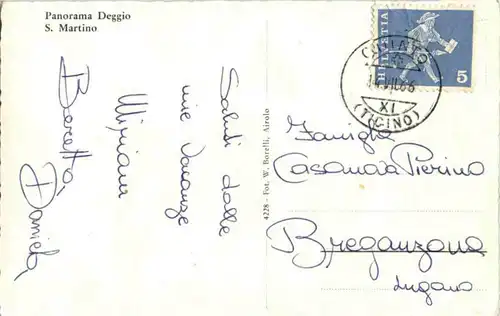 Panorama Deggio
S. Martino
Saluti dalle
mie vacanze
Miriam
Beretta,
Daniela,
4228 - Fot. W. Borelli, Airolo
HELVETIA
5
XI
(TICINO)
Famiglia
Casanova Pierino
Breganzona
Lugano